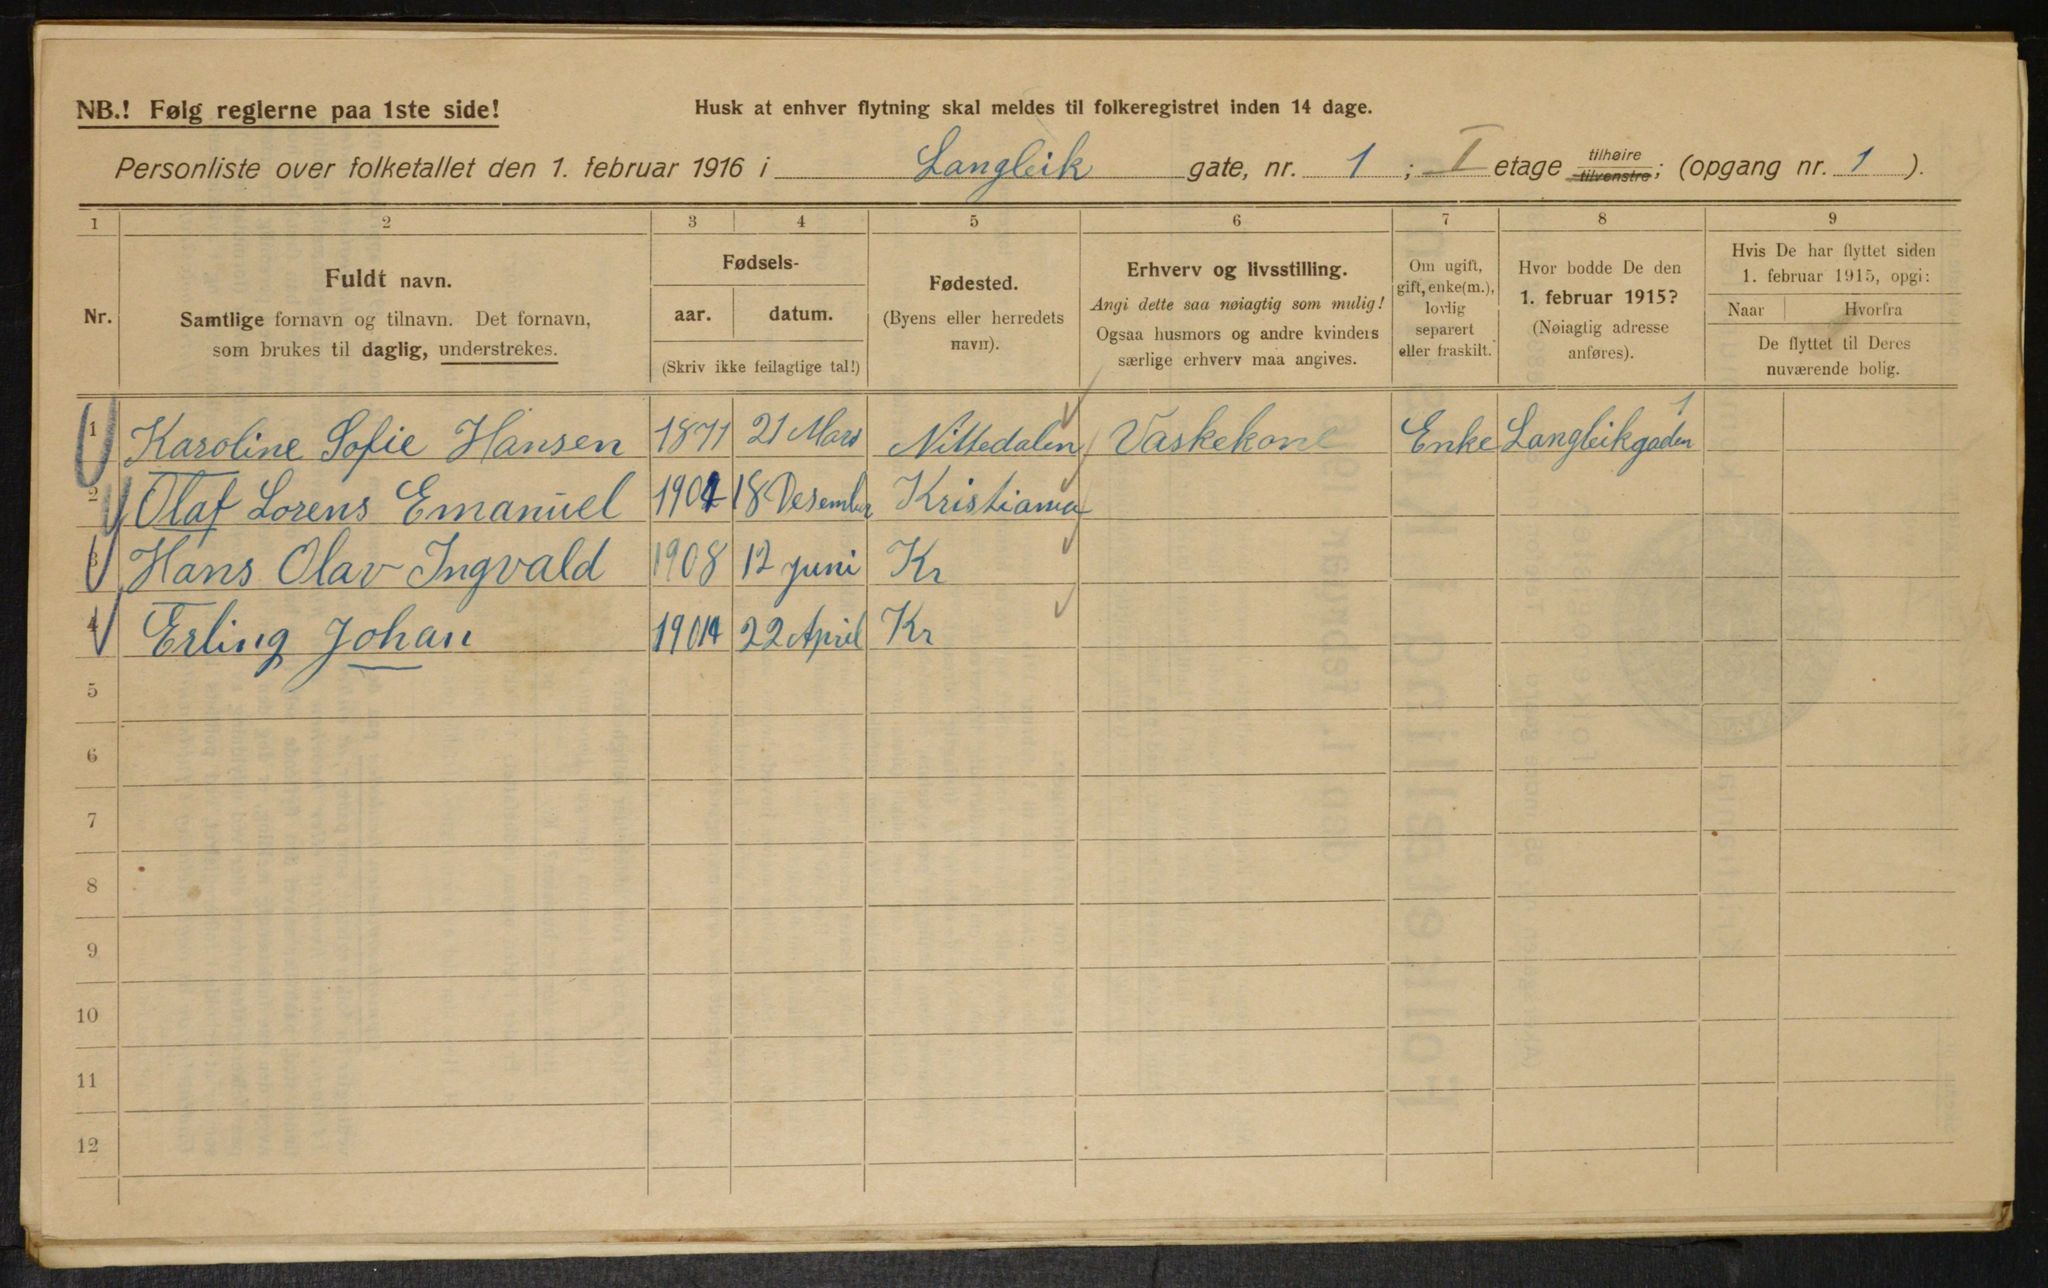 NB.! Følg reglerne paa 1ste side!
Husk at enhver flytning skal meldes til folkeregistret inden 14 dage.
Personliste over folketallet den 1. februar 1916 i Langleik gate, nr. 1 ; I etage tilhøire tilvenstre; (opgang nr. 1 ).
1 2 3 4 5 6 7 8 9
Nr.
Fuldt navn.
Samtlige fornavn og tilnavn. Det fornavn,
som brukes til daglig, understrekes.
Fødsels-
aar. datum.
(Skriv ikke feilagtige tal!)
Fødested.
(Byens eller herredets
navn).
Erhverv og livsstilling.
Angi dette saa nøiagtig som mulig!
Ogsaa husmors og andre kvinders
særlige erhverv maa angives.
Om ugift,
gift, enke(m.),
lovlig
separert
eller fraskilt.
Hvor bodde De den
1. februar 1915?
(Nøiagtig adresse
anføres).
Hvis De har flyttet siden
1. februar 1915, opgi:
Naar Hvorfra
De flyttet til Deres
nuværende bolig.
1 Karoline Sofie Hansen 1871 21 Mars Nittedalen Vaskekone Enke Langleikgaden 1
2 Olaf Lorens Emanuel 18 Desember Kristiania
3 Hans Olav Ingvald 1908 12 juni Kr
4 Erling Johan 22 April Kr
5
6
7
8
9
10
11
12